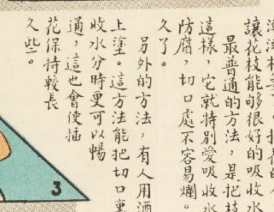 讓花枝能够很好的吸收水
最普通的方法，是把枝
這樣，它就特別愛吸收水
防腐，切口處不容易爛。
久了。
另外的方法，有人用酒
上塗。這方法能把切口裏
收水分時更可以暢
通，這也會使插
花保持較長
久些。
3